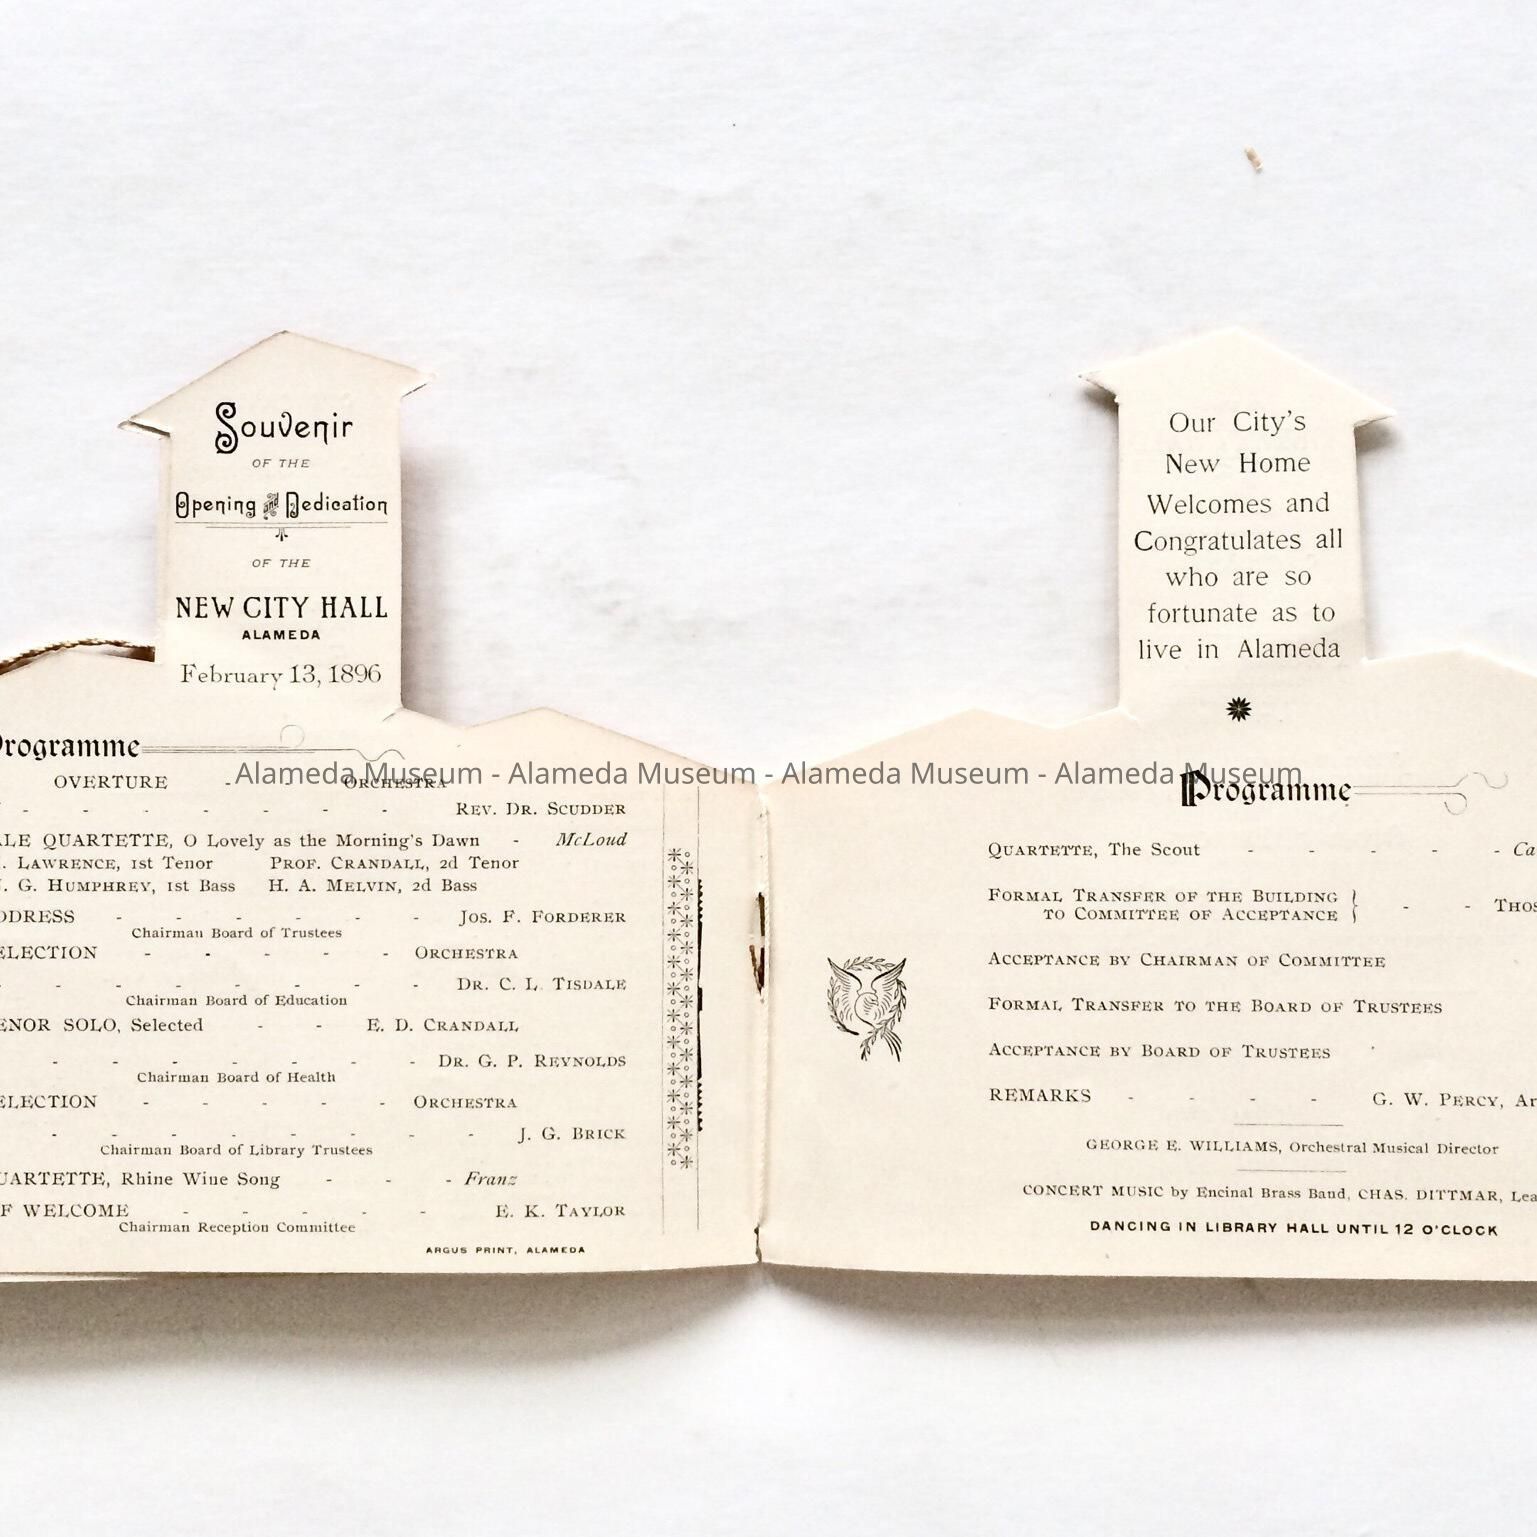 Souvenir
OF THE
Opening and Dedication
OF THE
NEW CITY HALL
ALAMEDA
February 13, 1896
Programme
OVERTURE - - ORCHESTRA
- - - - - - - REV. DR. SCUDDER
QUARTETTE, O Lovely as the Morning's Dawn - McLoud
LAWRENCE, 1st Tenor PROF. CRANDALL, 2d Tenor
G. HUMPHREY, 1st Bass H. A. MELVIN, 2d Bass
DDRESS - - - - - - JOS. F. FORDERER
Chairman Board of Trustees
ELECTION - - - - - ORCHESTRA
- - - - - - - - DR. C. L. TISDALE
Chairman Board of Education
ENOR SOLO, Selected - - E. D. CRANDALL
- - - - - - - DR. G. P. REYNOLDS
Chairman Board of Health
ELECTION - - - - - ORCHESTRA
- - - - - - - - J. G. BRICK
Chairman Board of Library Trustees
UARTETTE, Rhine Wine Song - - - Franz
F WELCOME - - - - - E. K. TAYLOR
Chairman Reception Committee
ARGUS PRINT, ALAMEDA
Our City's
New Home
Welcomes and
Congratulates all
who are so
fortunate as to
live in Alameda
Programme
QUARTETTE, The Scout - - - - - Ca
FORMAL TRANSFER OF THE BUILDING
TO COMMITTEE OF ACCEPTANCE } - - THOS
ACCEPTANCE BY CHAIRMAN OF COMMITTEE
FORMAL TRANSFER TO THE BOARD OF TRUSTEES
ACCEPTANCE BY BOARD OF TRUSTEES
REMARKS - - - - G. W. PERCY, Ar
GEORGE E. WILLIAMS, Orchestral Musical Director
CONCERT MUSIC by Encinal Brass Band, CHAS. DITTMAR, Lea
DANCING IN LIBRARY HALL UNTIL 12 O'CLOCK
Alameda Museum - Alameda Museum - Alameda Museum - Alameda Museum